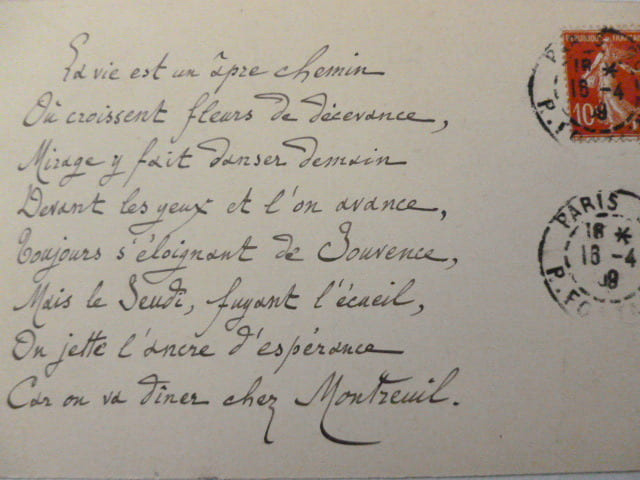 La vie est un âpre chemin
Où croissent fleurs de décevance,
Mirage y fait danser demain
Devant les yeux et l'on avance,
Toujours s'éloignant de Jouvence,
Mais le Jeudi, fuyant l'écueil,
On jette l'ancre d'espérance
Car on va dîner chez Montreuil.
10
18 *
16 -4
09
PARIS
18 *
16 -4
09